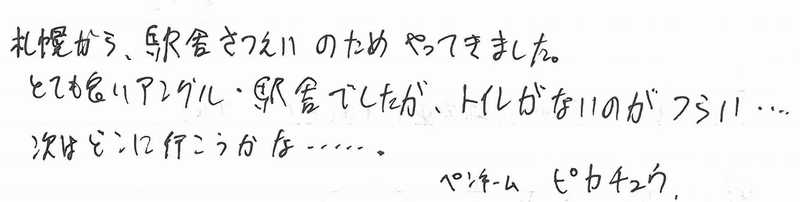 札幌から、駅舎さつえいのためやってきました。
とても良いアングル・駅舎でしたが、トイレがないのがつらい‥‥
次はどこに行こうかな‥‥‥。
ペンネーム ピカチュウ